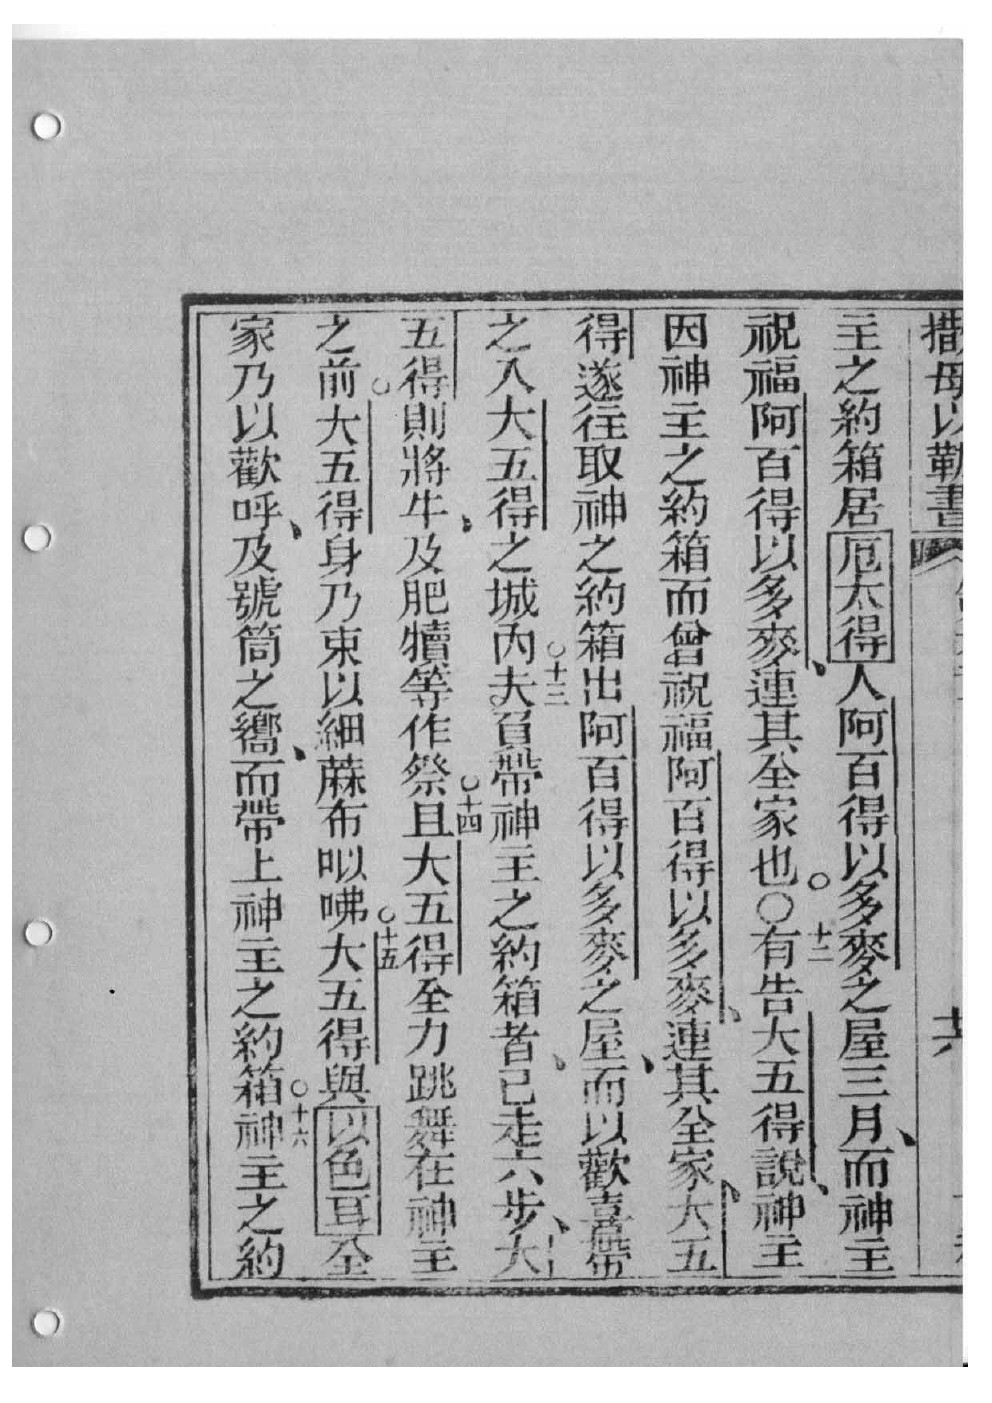 撒母以勒書
主之約箱居厄太得人阿百得以多麥之屋三月、而神主
祝福阿百得以多麥、連其全家也。〇十二有告大五得說、神主
因神主之約箱而曾祝福阿百得以多麥、連其全家、大五
得遂往取神之約箱出阿百得以多麥之屋、而以歡喜帶
之入大五得之城內〇十三夫負帶神主之約箱者、已走六步、大
五得則將牛、及肥犢等作祭〇十四且大五得全力跳舞在神主
之前〇大五得身乃束以細蔴布㕥咈〇十五大五得與以色耳全
家乃以歡呼、及號筒之嚮、而帶上神主之約箱〇十六神主之約